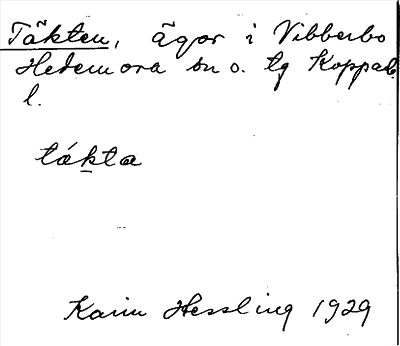 Täkten, ägor i Vibberbo
Hedemora sn o. tg Koppab.
l.
tákta
Karin Hessling 1929